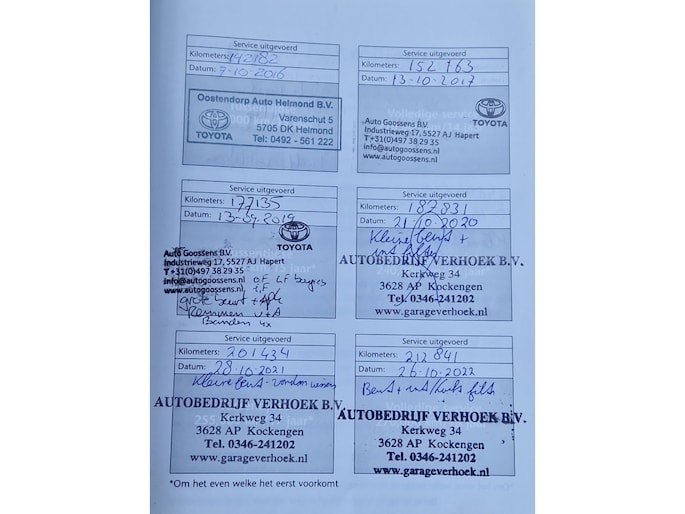 Service uitgevoerd
Kilometers: 142182
Datum: 7-10-2016
Oostendorp Auto Helmond B.V.
Varenschut 5
5705 DK Helmond
Tel: 0492 - 561 222
TOYOTA
Service uitgevoerd
Kilometers: 152 763
Datum: 13-10-2017
Auto Goossens B.V.
Industrieweg 17, 5527 AJ Hapert
T +31(0)497 38 29 35
info@autogoossens.nl
www.autogoossens.nl
TOYOTA
Service uitgevoerd
Kilometers: 177135
Datum: 13-09-2019
TOYOTA
Auto Goossens B.V.
Industrieweg 17, 5527 AJ Hapert
T +31(0)497 38 29 35
info@autogoossens.nl
www.autogoossens.nl
grote beurt +
Remmen V+A
Banden 4x
Service uitgevoerd
Kilometers: 182831
Datum: 21-10-2020
Kleine beurt +
AUTOBEDRIJF VERHOEK B.V.
Kerkweg 34
3628 AP Kockengen
Tel. 0346-241202
www.garageverhoek.nl
Service uitgevoerd
Kilometers: 201434
Datum: 28-10-2021
Kleine beurt -
AUTOBEDRIJF VERHOEK B.V.
Kerkweg 34
3628 AP Kockengen
Tel. 0346-241202
www.garageverhoek.nl
Service uitgevoerd
Kilometers: 212 841
Datum: 26-10-2022
Beurt +
AUTOBEDRIJF VERHOEK B.V.
Kerkweg 34
3628 AP Kockengen
Tel. 0346-241202
www.garageverhoek.nl
*Om het even welke het eerst voorkomt